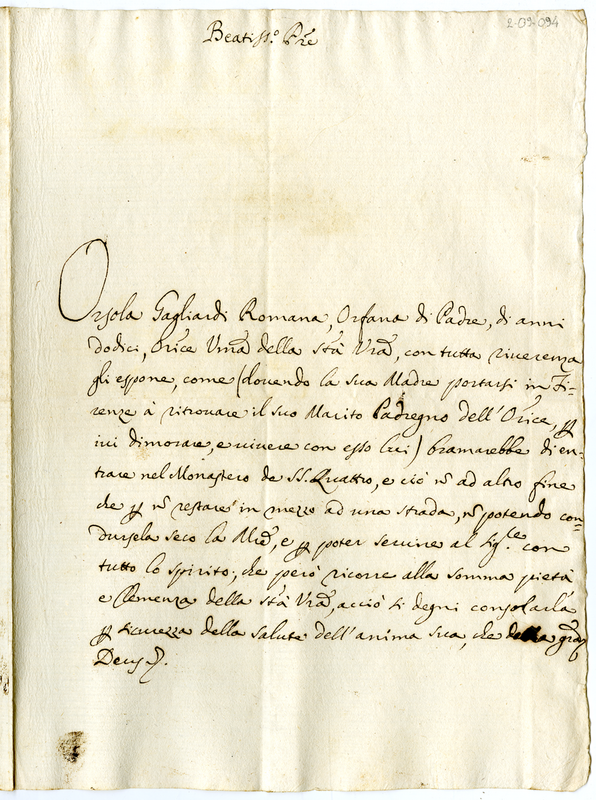 2-09-094
Beatiss.o Pre
Orsola Gagliardi Romana, Orfana di Padre, di anni
dodici, Orice Uma della Sta Vra, con tutta riverenza
gli espone, come (dovendo la sua Madre portarsi in Fi=
renze à ritrovare il suo Marito Padregno dell'Orice, p
ivi dimorare, e vivere con esso lui) bramarebbe di en=
trare nel Monastero de SS. Quattro, e ciò nō ad altro fine
che p nō restare in mezzo ad una strada, nō potendo con=
dursela seco la Mre, e p poter servire al Sig.re con
tutto lo spirito; che però ricorre alla somma pietà
e Clemenza della Sta Vra, acciò si degni consolarla
p sicurezza della salute dell'anima sua, che della gra
Deus